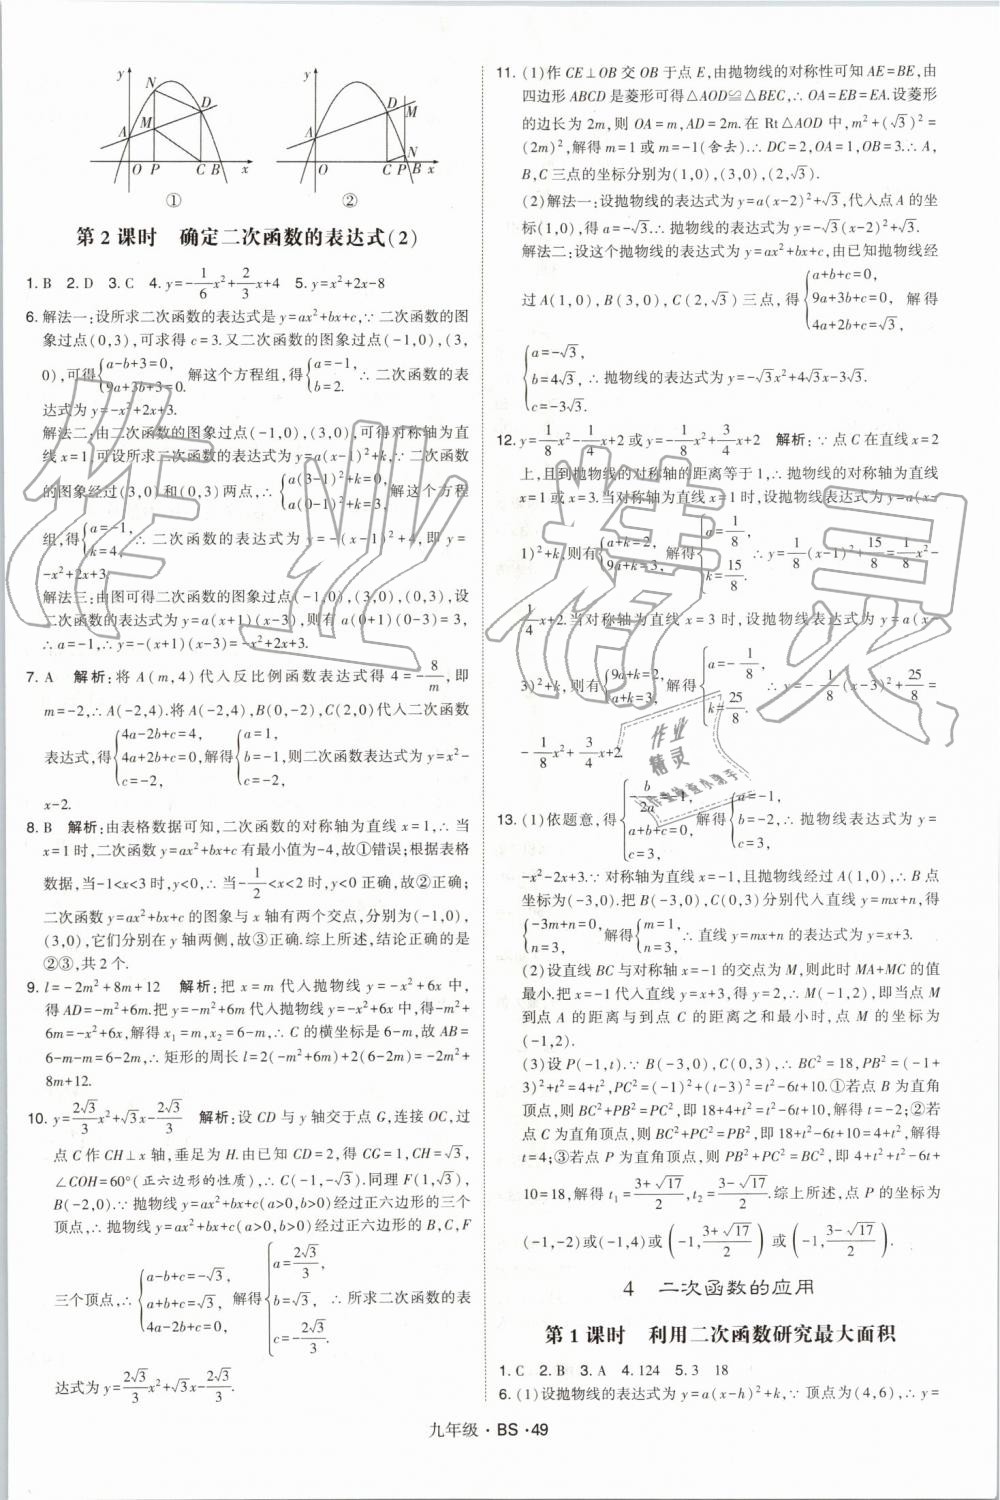 y
N
D
M
A
O P C B x
①
y
D
M
A
N
O C P B x
②
第 2 课时 确定二次函数的表达式(2)
1. B 2. D 3. C 4. y=-1/6x²+2/3x+4 5. y=x²+2x-8
6. 解法一:设所求二次函数的表达式是 y=ax²+bx+c,∵ 二次函数的图
象过点(0,3),可求得 c=3.又二次函数的图象过点(-1,0),(3,
0),可得{a-b+3=0, 9a+3b+3=0. 解这个方程组,得{a=-1, b=2. ∴ 二次函数的表
达式为 y=-x²+2x+3.
解法二:由二次函数的图象过点(-1,0),(3,0),可得对称轴为直
线 x=1,可设所求二次函数的表达式为 y=a(x-1)²+k,∵ 二次函数
的图象经过(3,0)和(0,3)两点,∴ {a(3-1)²+k=0, a(0-1)²+k=3. 解这个方程
组,得{a=-1, k=4. ∴ 二次函数的表达式为 y=-(x-1)²+4,即 y=
-x²+2x+3.
解法三:由图可得二次函数的图象过点(-1,0),(3,0),(0,3),设
二次函数的表达式为 y=a(x+1)(x-3),则有 a(0+1)(0-3)=3,
∴ a=-1,∴ y=-(x+1)(x-3)=-x²+2x+3.
7. A 解析:将 A(m,4)代入反比例函数表达式得 4=-8/m,即
m=-2,∴ A(-2,4).将 A(-2,4),B(0,-2),C(2,0)代入二次函数
表达式,得{4a-2b+c=4, 4a+2b+c=0, c=-2. 解得{a=1, b=-1, c=-2. 则二次函数表达式为 y=x²-
x-2.
8. B 解析:由表格数据可知,二次函数的对称轴为直线 x=1,∴ 当
x=1 时,二次函数 y=ax²+bx+c 有最小值为-4,故①错误;根据表格
数据,当-1<x<3 时,y<0,∴ 当-1/2<x<2 时,y<0 正确,故②正确;
二次函数 y=ax²+bx+c 的图象与 x 轴有两个交点,分别为(-1,0),
(3,0),它们分别在 y 轴两侧,故③正确.综上所述,结论正确的是
②③,共 2 个.
9. l=-2m²+8m+12 解析:把 x=m 代入抛物线 y=-x²+6x 中,
得 AD=-m²+6m.把 y=-m²+6m 代入抛物线 y=-x²+6x 中,得-m²+
6m=-x²+6x,解得 x₁=m,x₂=6-m,∴ C 的横坐标是 6-m,故 AB=
6-m-m=6-2m,∴ 矩形的周长 l=2(-m²+6m)+2(6-2m)=-2m²+
8m+12.
10. y=2√3/3x²+√3x-2√3/3 解析:设 CD 与 y 轴交于点 G,连接 OC,过
点 C 作 CH⊥x 轴,垂足为 H.由已知 CD=2,得 CG=1,CH=√3,
∠COH=60°(正六边形的性质),∴ C(-1,-√3).同理 F(1,√3),
B(-2,0).∵ 抛物线 y=ax²+bx+c(a>0,b>0)经过正六边形的三个
顶点,∴ 抛物线 y=ax²+bx+c(a>0,b>0)经过正六边形的 B,C,F
三个顶点,∴ {a-b+c=-√3, a+b+c=√3, 4a-2b+c=0, 解得{a=2√3/3, b=√3, c=-2√3/3. ∴ 所求二次函数的表
达式为 y=2√3/3x²+√3x-2√3/3.
11. (1)作 CE⊥OB 交 OB 于点 E,由抛物线的对称性可知 AE=BE,由
四边形 ABCD 是菱形可得△AOD≌△BEC,∴ OA=EB=EA.设菱形
的边长为 2m,则 OA=m,AD=2m.在 Rt△AOD 中,m²+(√3)²=
(2m)²,解得 m=1 或 m=-1(舍去)∴ DC=2,OA=1,OB=3.∴ A,
B,C 三点的坐标分别为(1,0),(3,0),(2,√3).
(2)解法一:设抛物线的表达式为 y=a(x-2)²+√3,代入点 A 的坐
标(1,0),得 a=-√3.∴ 抛物线的表达式为 y=-√3(x-2)²+√3.
解法二:设这个抛物线的表达式为 y=ax²+bx+c,由已知抛物线经
过 A(1,0),B(3,0),C(2,√3)三点,得{a+b+c=0, 9a+3b+c=0, 4a+2b+c=√3, 解得
{a=-√3, b=4√3, c=-3√3. ∴ 抛物线的表达式为 y=-√3x²+4√3x-3√3.
12. y=1/8x²-1/4x+2 或 y=-1/8x²+3/4x+2 解析:∵ 点 C 在直线 x=2
上,且到抛物线的对称轴的距离等于 1,∴ 抛物线的对称轴为直线
x=1 或 x=3.当对称轴为直线 x=1 时,设抛物线表达式为 y=a(x-
1)²+k,则有{a+k=2, 9a+k=3, 解得{a=1/8, k=15/8. ∴ y=1/8(x-1)²+15/8=1/8x²-
1/4x+2.当对称轴为直线 x=3 时,设抛物线表达式为 y=a(x-
3)²+k,则有{9a+k=2, a+k=3, 解得{a=-1/8, k=25/8. ∴ y=-1/8(x-3)²+25/8=
-1/8x²+3/4x+2.
13. (1)依题意,得{-b/2a=-1, a+b+c=0, c=3, 解得{a=-1, b=-2, c=3, ∴ 抛物线表达式为 y=
-x²-2x+3.∵ 对称轴为直线 x=-1,且抛物线经过 A(1,0),∴ B 点
坐标为(-3,0).把 B(-3,0),C(0,3)分别代入直线 y=mx+n,得
{-3m+n=0, n=3, 解得{m=1, n=3, ∴ 直线 y=mx+n 的表达式为 y=x+3.
(2)设直线 BC 与对称轴 x=-1 的交点为 M,则此时 MA+MC 的值
最小.把 x=-1 代入直线 y=x+3,得 y=2,∴ M(-1,2),即当点 M
到点 A 的距离与到点 C 的距离之和最小时,点 M 的坐标为
(-1,2).
(3)设 P(-1,t).∵ B(-3,0),C(0,3),∴ BC²=18,PB²=(-1+
3)²+t²=4+t²,PC²=(-1)²+(t-3)²=t²-6t+10.①若点 B 为直角
顶点,则 BC²+PB²=PC²,即 18+4+t²=t²-6t+10,解得 t=-2;②若
点 C 为直角顶点,则 BC²+PC²=PB²,即 18+t²-6t+10=4+t²,解得
t=4;③若点 P 为直角顶点,则 PB²+PC²=BC²,即 4+t²+t²-6t
+10=18,解得 t₁=3+√17/2,t₂=3-√17/2.综上所述,点 P 的坐标为
(-1,-2)或(-1,4)或(-1,3+√17/2)或(-1,3-√17/2).
4 二次函数的应用
第 1 课时 利用二次函数研究最大面积
1. C 2. B 3. A 4. 124 5. 3 18
6. (1)设抛物线的表达式为 y=a(x-h)²+k,∵ 顶点为(4,6),∴ y=
九年级·BS·49
作业精灵
作业
精灵